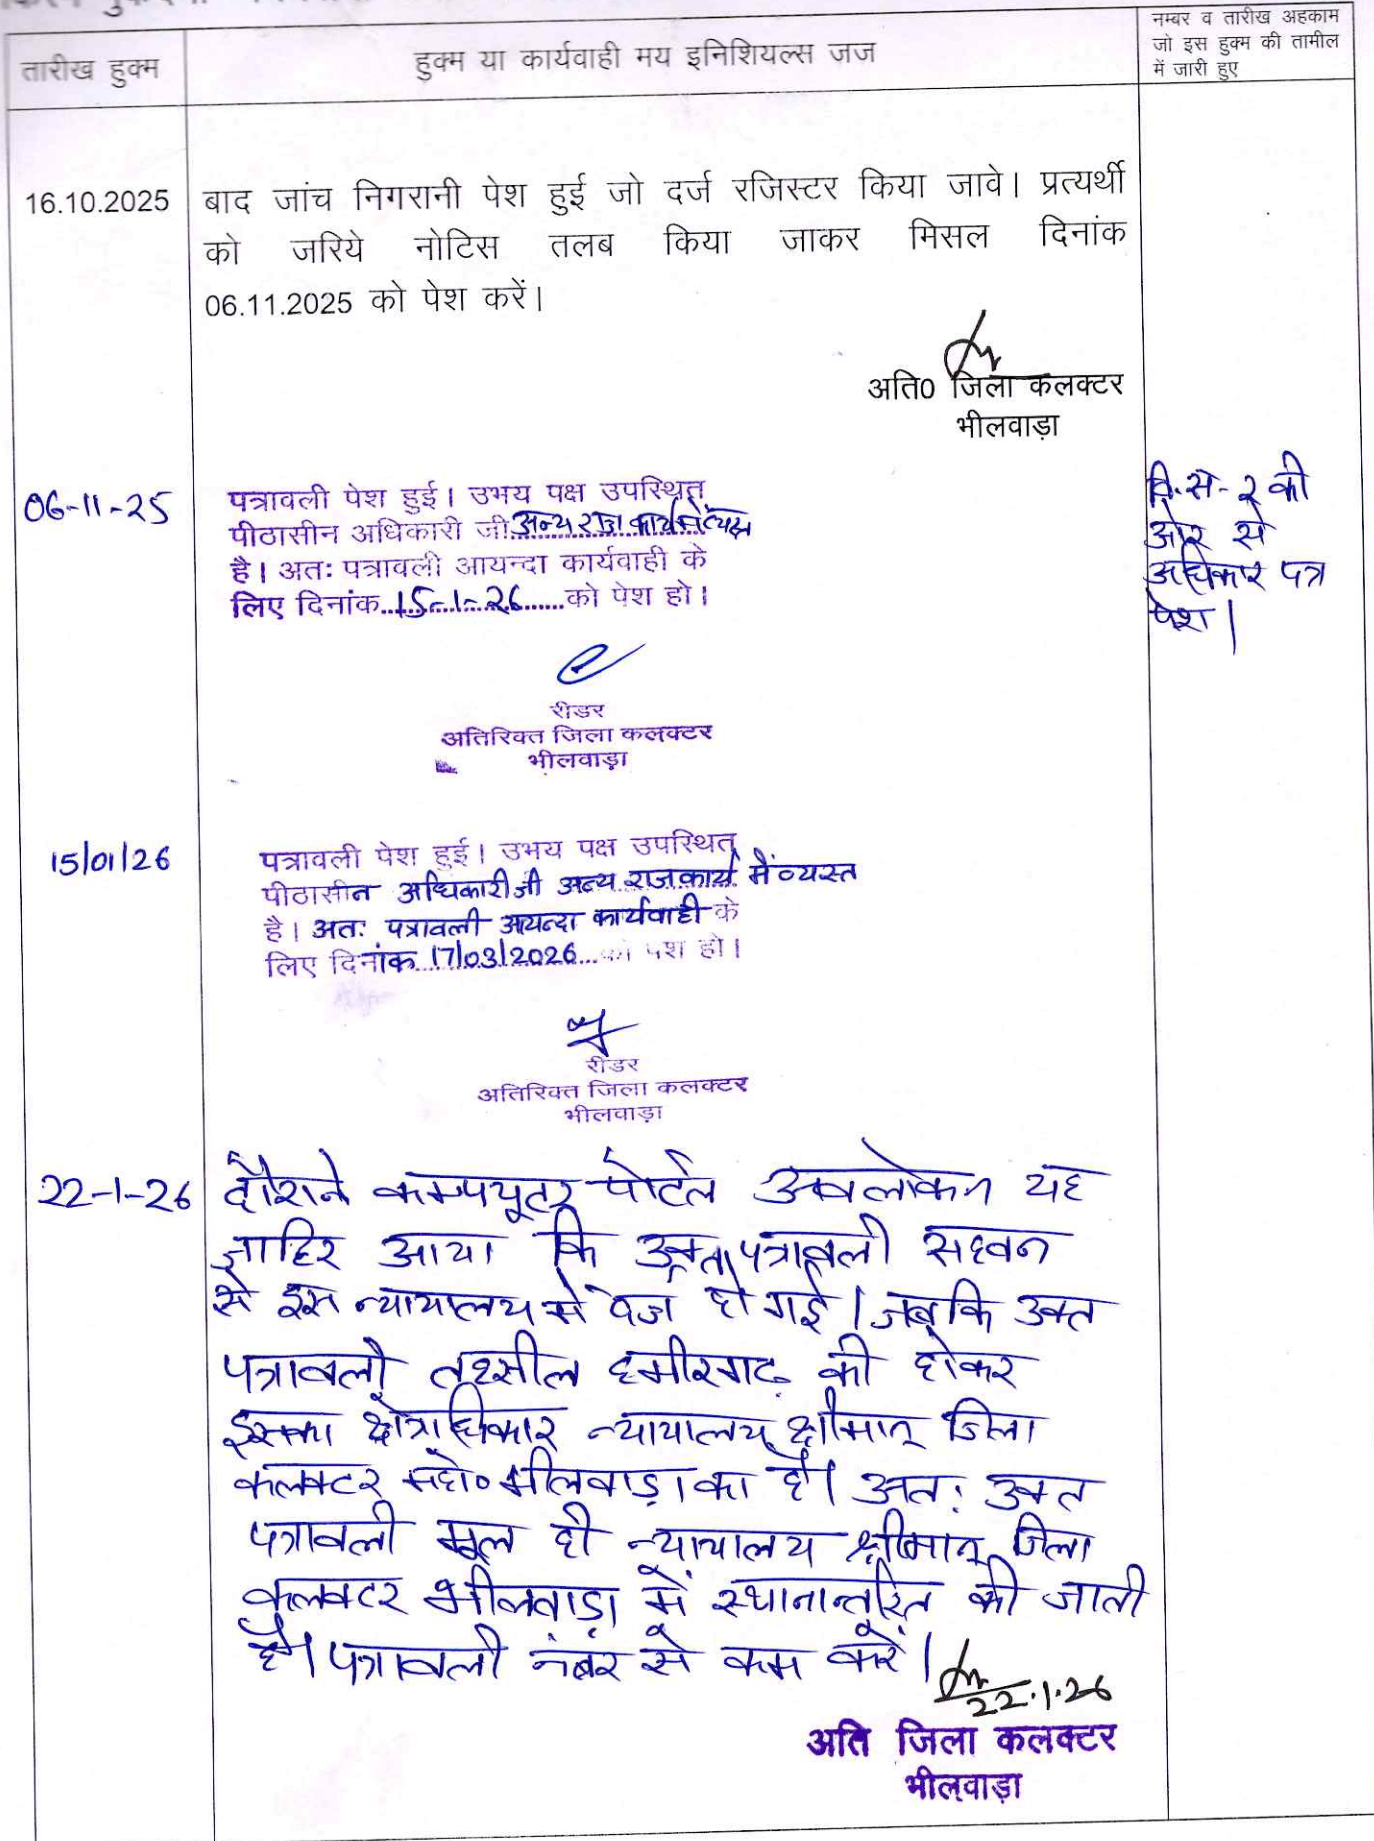 तारीख हुक्म
हुक्म या कार्यवाही मय इनिशियल्स जज
नम्बर व तारीख अहकाम
जो इस हुक्म की तामील
में जारी हुए
16.10.2025
बाद जांच निगरानी पेश हुई जो दर्ज रजिस्टर किया जावे। प्रत्यर्थी
को जरिये नोटिस तलब किया जाकर मिसल दिनांक
06.11.2025 को पेश करें।
अति0 जिला कलक्टर
भीलवाड़ा
06-11-25
पत्रावली पेश हुई। उभय पक्ष उपस्थित
पीठासीन अधिकारी जी अन्य राज कार्य में
है। अतः पत्रावली आयन्दा कार्यवाही के
लिए दिनांक 15-1-26 को पेश हो।
रीडर
अतिरिक्त जिला कलक्टर
भीलवाड़ा
-2 की
ओर से
अधिकार पत्र
पेश।
15/01/26
पत्रावली पेश हुई। उभय पक्ष उपस्थित
पीठासीन अधिकारी जी अन्य राजकार्य में व्यस्त
है। अतः पत्रावली आयन्दा कार्यवाही के
लिए दिनांक 17/03/2026 को पेश हो।
रीडर
अतिरिक्त जिला कलक्टर
भीलवाड़ा
22-1-26
दौराने कम्पयूटर पोर्टल अवलोकन यह
जाहिर आया कि उक्त पत्रावली सहवन
से इस न्यायालय में दर्ज हो गई। जबकि उक्त
पत्रावली तहसील हमीरगढ़ की होकर
इसका क्षेत्राधिकार न्यायालय श्रीमान् जिला
कलक्टर महो० भीलवाड़ा का है। अतः उक्त
पत्रावली मूल ही न्यायालय श्रीमान् जिला
कलक्टर भीलवाड़ा में स्थानान्तरित की जाती
है। पत्रावली नंबर से कम करें।
22.1.26
अति जिला कलक्टर
भीलवाड़ा